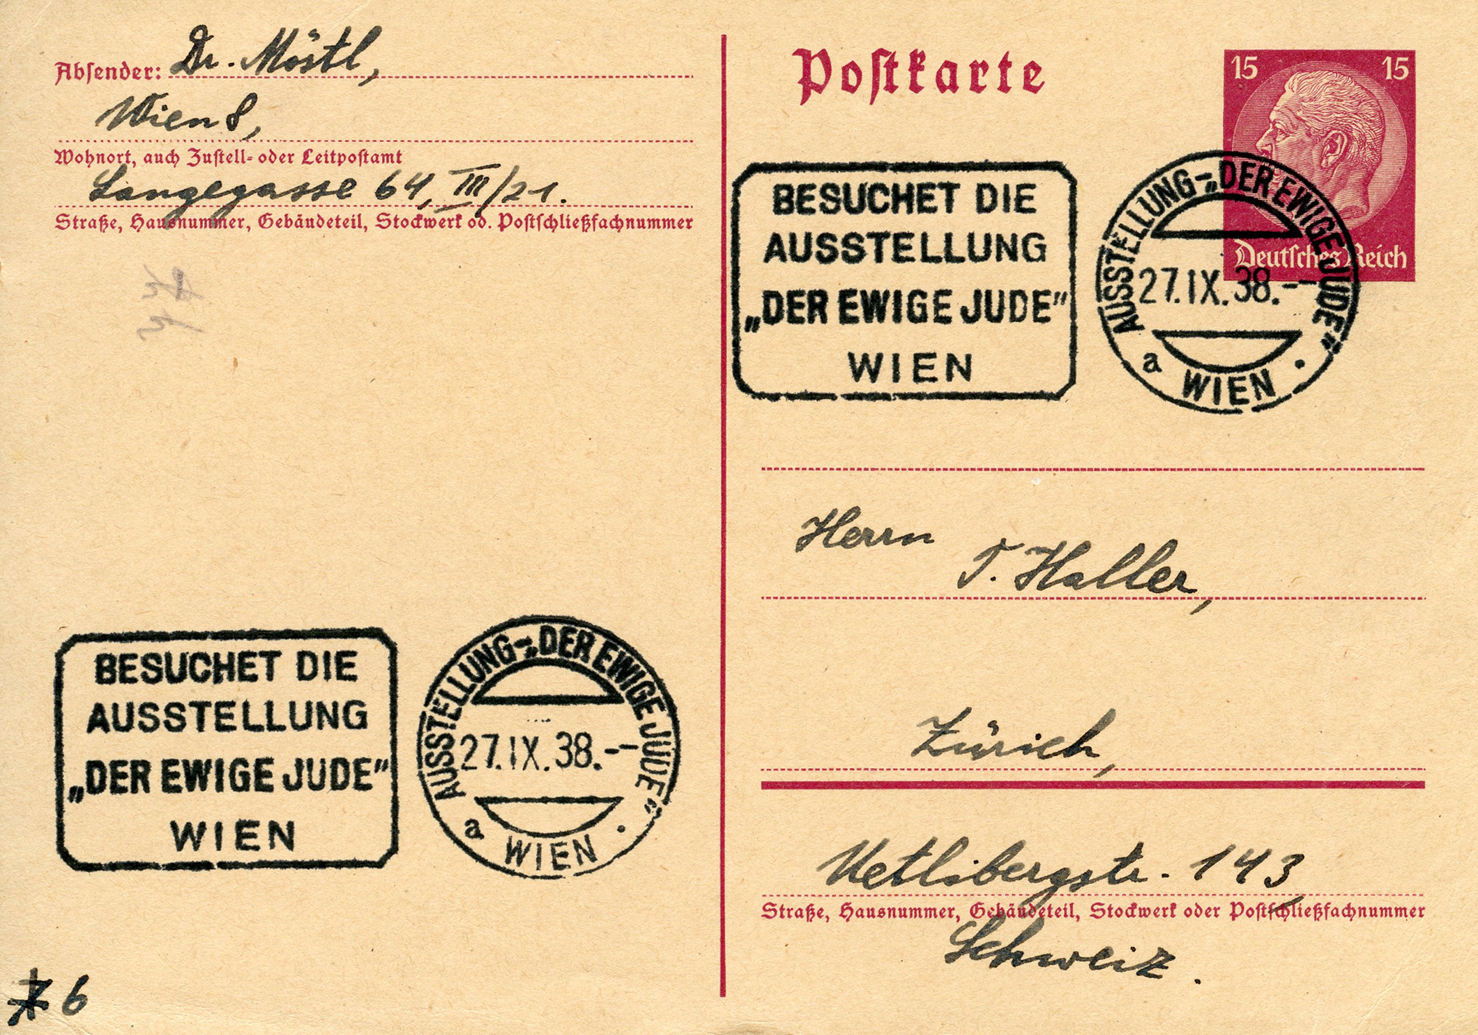 Absender: Dr. Möstl,
Wien 8,
Wohnort, auch Zustell- oder Leitpostamt
Langegasse 64, III/21.
Straße, Hausnummer, Gebäudeteil, Stockwerk od. Postschließfachnummer
Postkarte
15 15
Deutsches Reich
BESUCHET DIE
AUSSTELLUNG
„DER EWIGE JUDE"
WIEN
AUSSTELLUNG-„DER EWIGE JUDE"
27.IX.38.--
a WIEN
Herrn
T. Haller,
Zürich,
Uetlibergstr. 143
Straße, Hausnummer, Gebäudeteil, Stockwerk oder Postschließfachnummer
Schweiz.
BESUCHET DIE
AUSSTELLUNG
„DER EWIGE JUDE"
WIEN
AUSSTELLUNG-„DER EWIGE JUDE"
27.IX.38.--
a WIEN
6